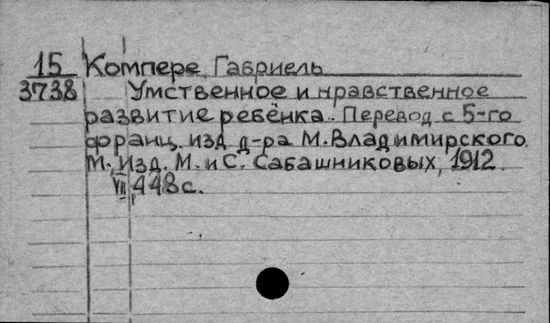 15 Компере, Габриель
3738 Умственное и нравственное
развитие ребёнка. Перевод с 5-го
франц. изд. д-ра М. Владимирского.
М., Изд. М. и С. Сабашниковых, 1912.
VII, 448 с.